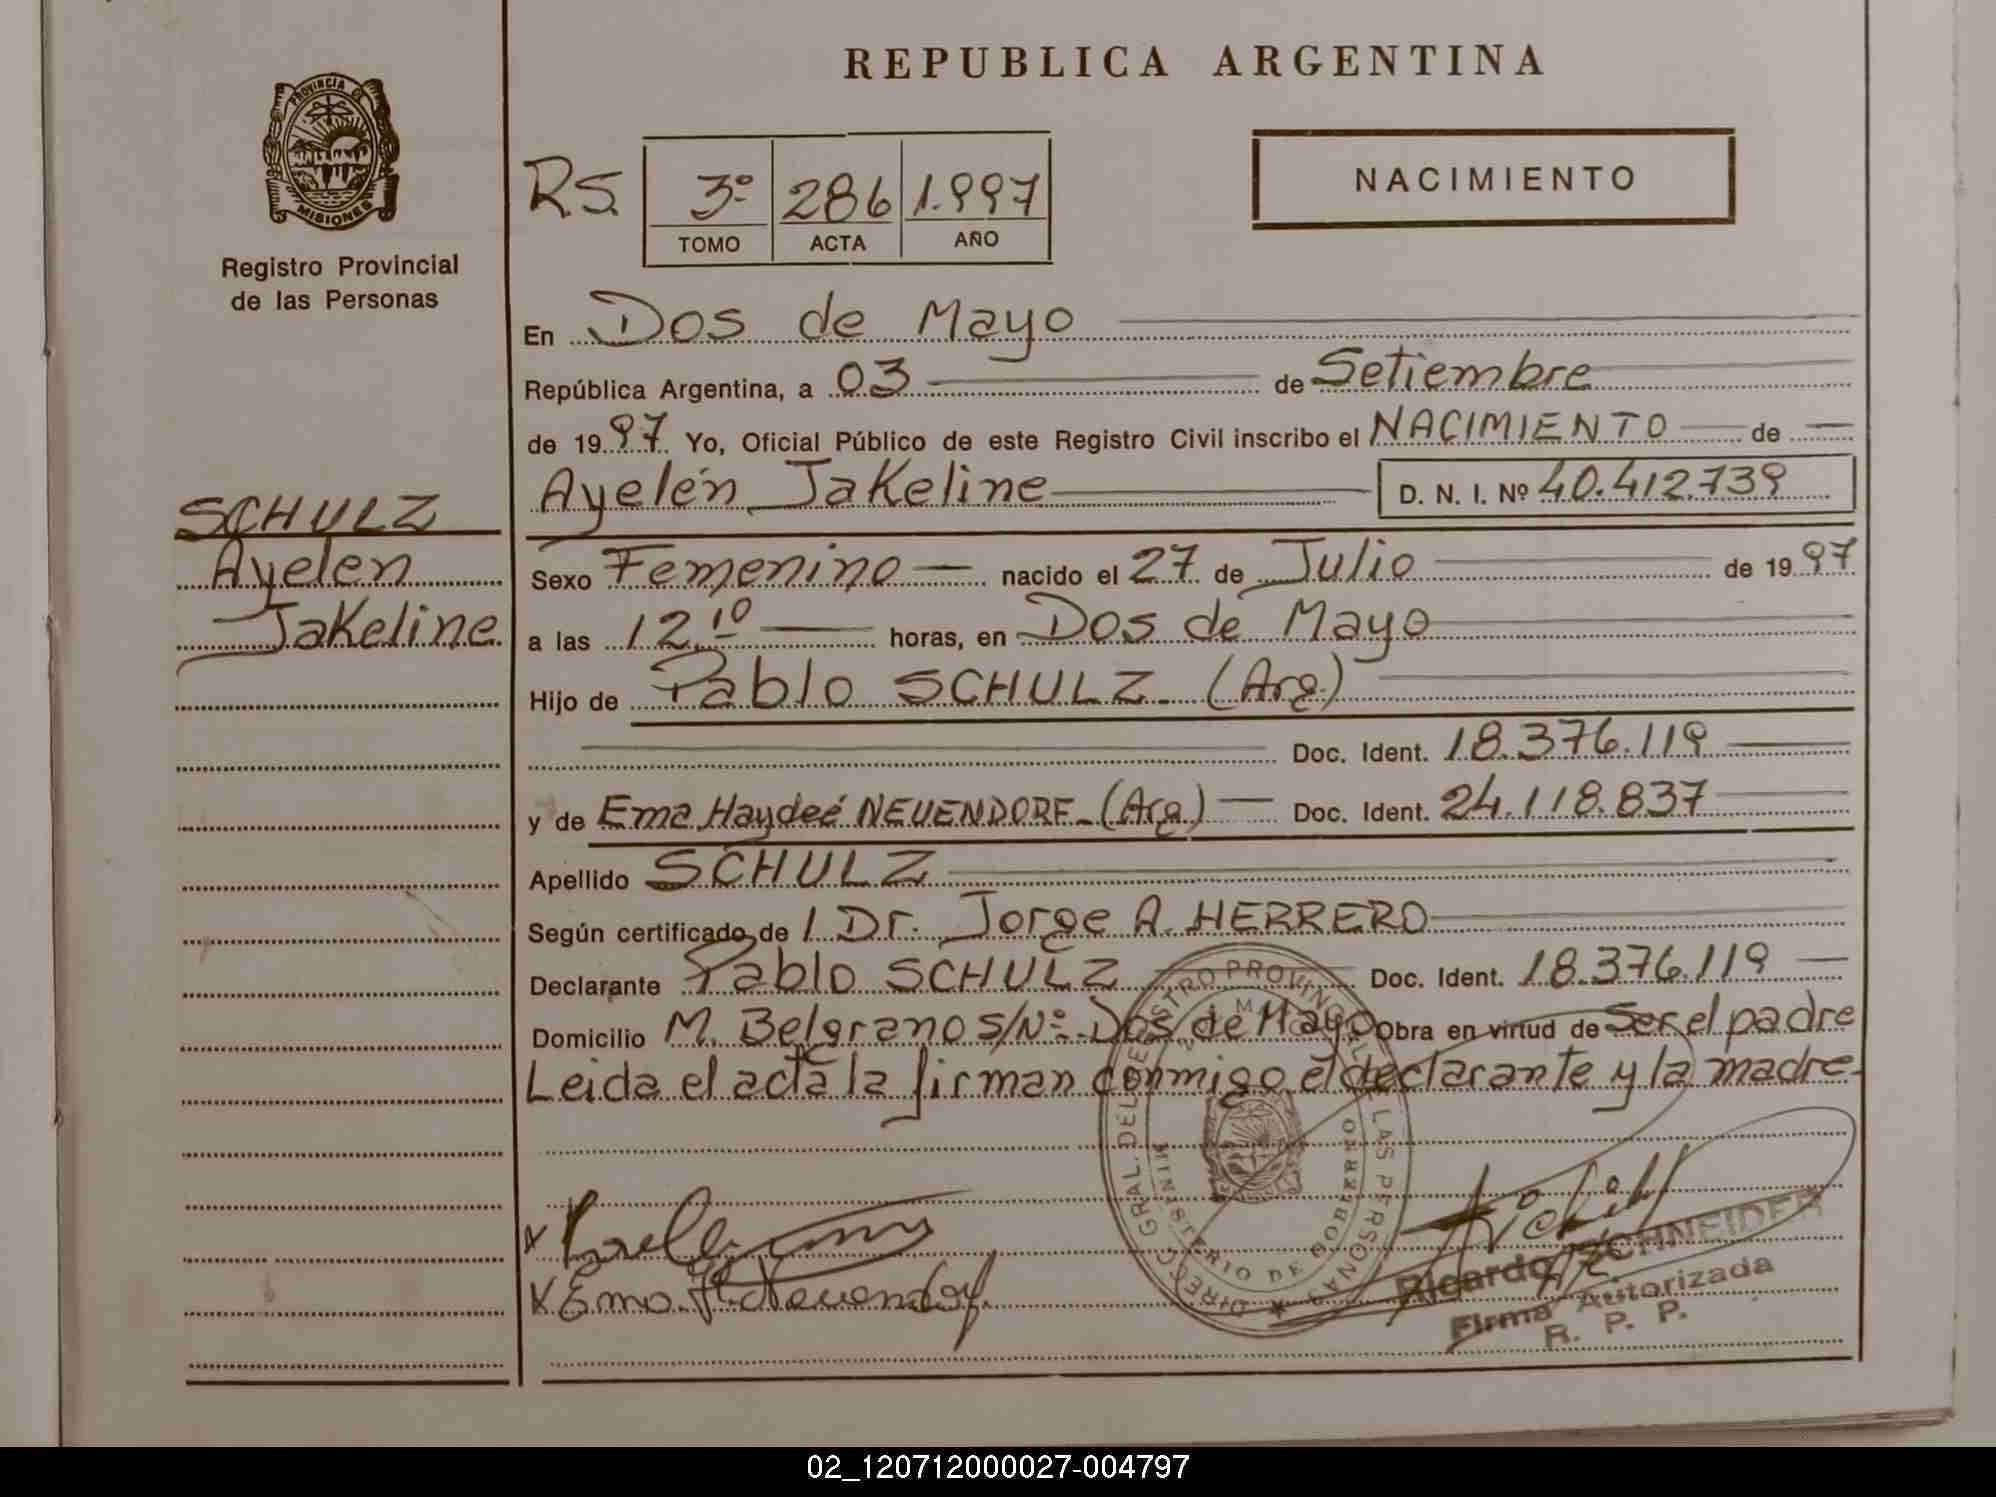 REPUBLICA ARGENTINA
PROVINCIA DE
MISIONES
Registro Provincial
de las Personas
R.S. 3º 286 1.997
TOMO ACTA AÑO
NACIMIENTO
En Dos de Mayo
República Argentina, a 03 de Setiembre
de 1997. Yo, Oficial Público de este Registro Civil inscribo el NACIMIENTO de
Ayelén Jakeline D. N. I. Nº 40.412.739
SCHULZ
Ayelen
Jakeline
Sexo Femenino nacido el 27 de Julio de 1997
a las 12.10 horas, en Dos de Mayo
Hijo de Pablo SCHULZ. (Arg)
Doc. Ident. 18.376.119
y de Ema Haydeé NEUENDORF. (Arg) Doc. Ident. 24.118.837
Apellido SCHULZ
Según certificado de / Dr. Jorge A. HERRERO
Declarante Pablo SCHULZ Doc. Ident. 18.376.119
Domicilio M. Belgrano S/Nº Dos de Mayo Obra en virtud de Ser el padre
Leida el acta la firman conmigo el declarante y la madre.
DIRECC. GRAL. DEL REGISTRO PROVINCIAL DE LAS PERSONAS
MINISTERIO DE GOBIERNO
X
X Ema. H. Neuendorf.
Ricardo SCHNEIDER
Firma Autorizada
R. P. P.
02_120712000027-004797